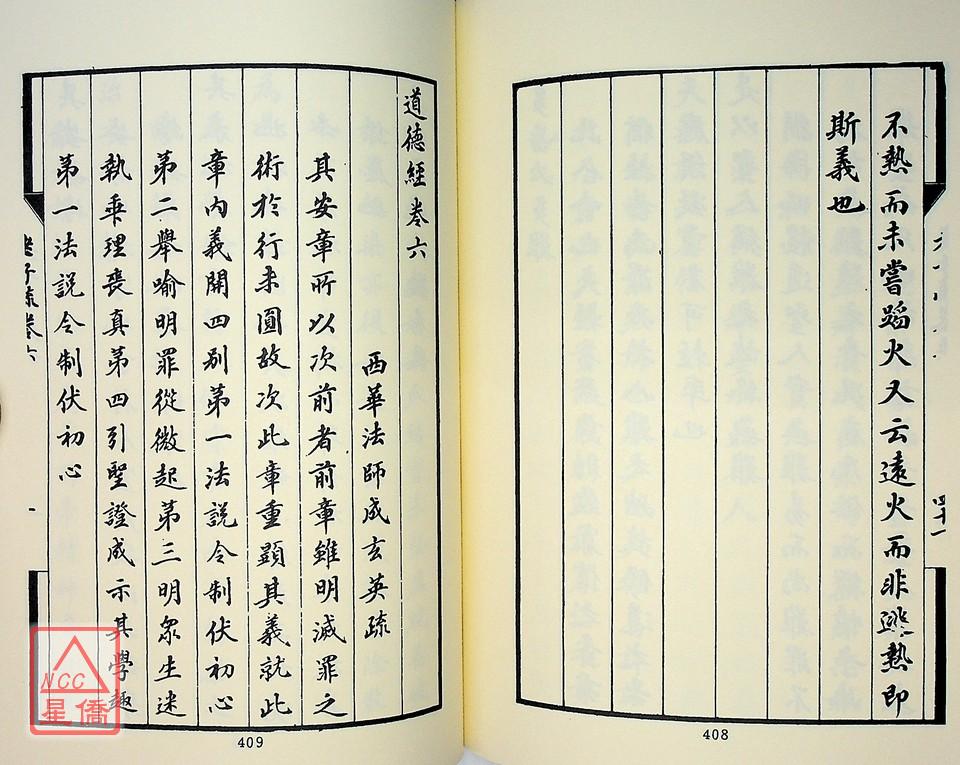 不熱而未嘗蹈火又云遠火而非逃熱即
斯義也
四十一
408
道德經卷六
西華法師成玄英疏
其安章所以次前者前章雖明滅罪之
術於行未圓故次此章重顯其義就此
章內義開四別第一法說令制伏初心
第二舉喻明罪從微起第三明眾生迷
執乖理喪真第四引聖證成示其學趣
第一法說令制伏初心
老子疏卷六
一
409
NCC
星僑